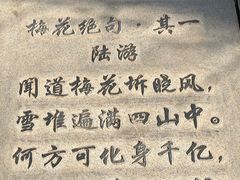 梅花绝句·其一
陆游
闻道梅花坼晓风，
雪堆遍满四山中。
何方可化身千亿，